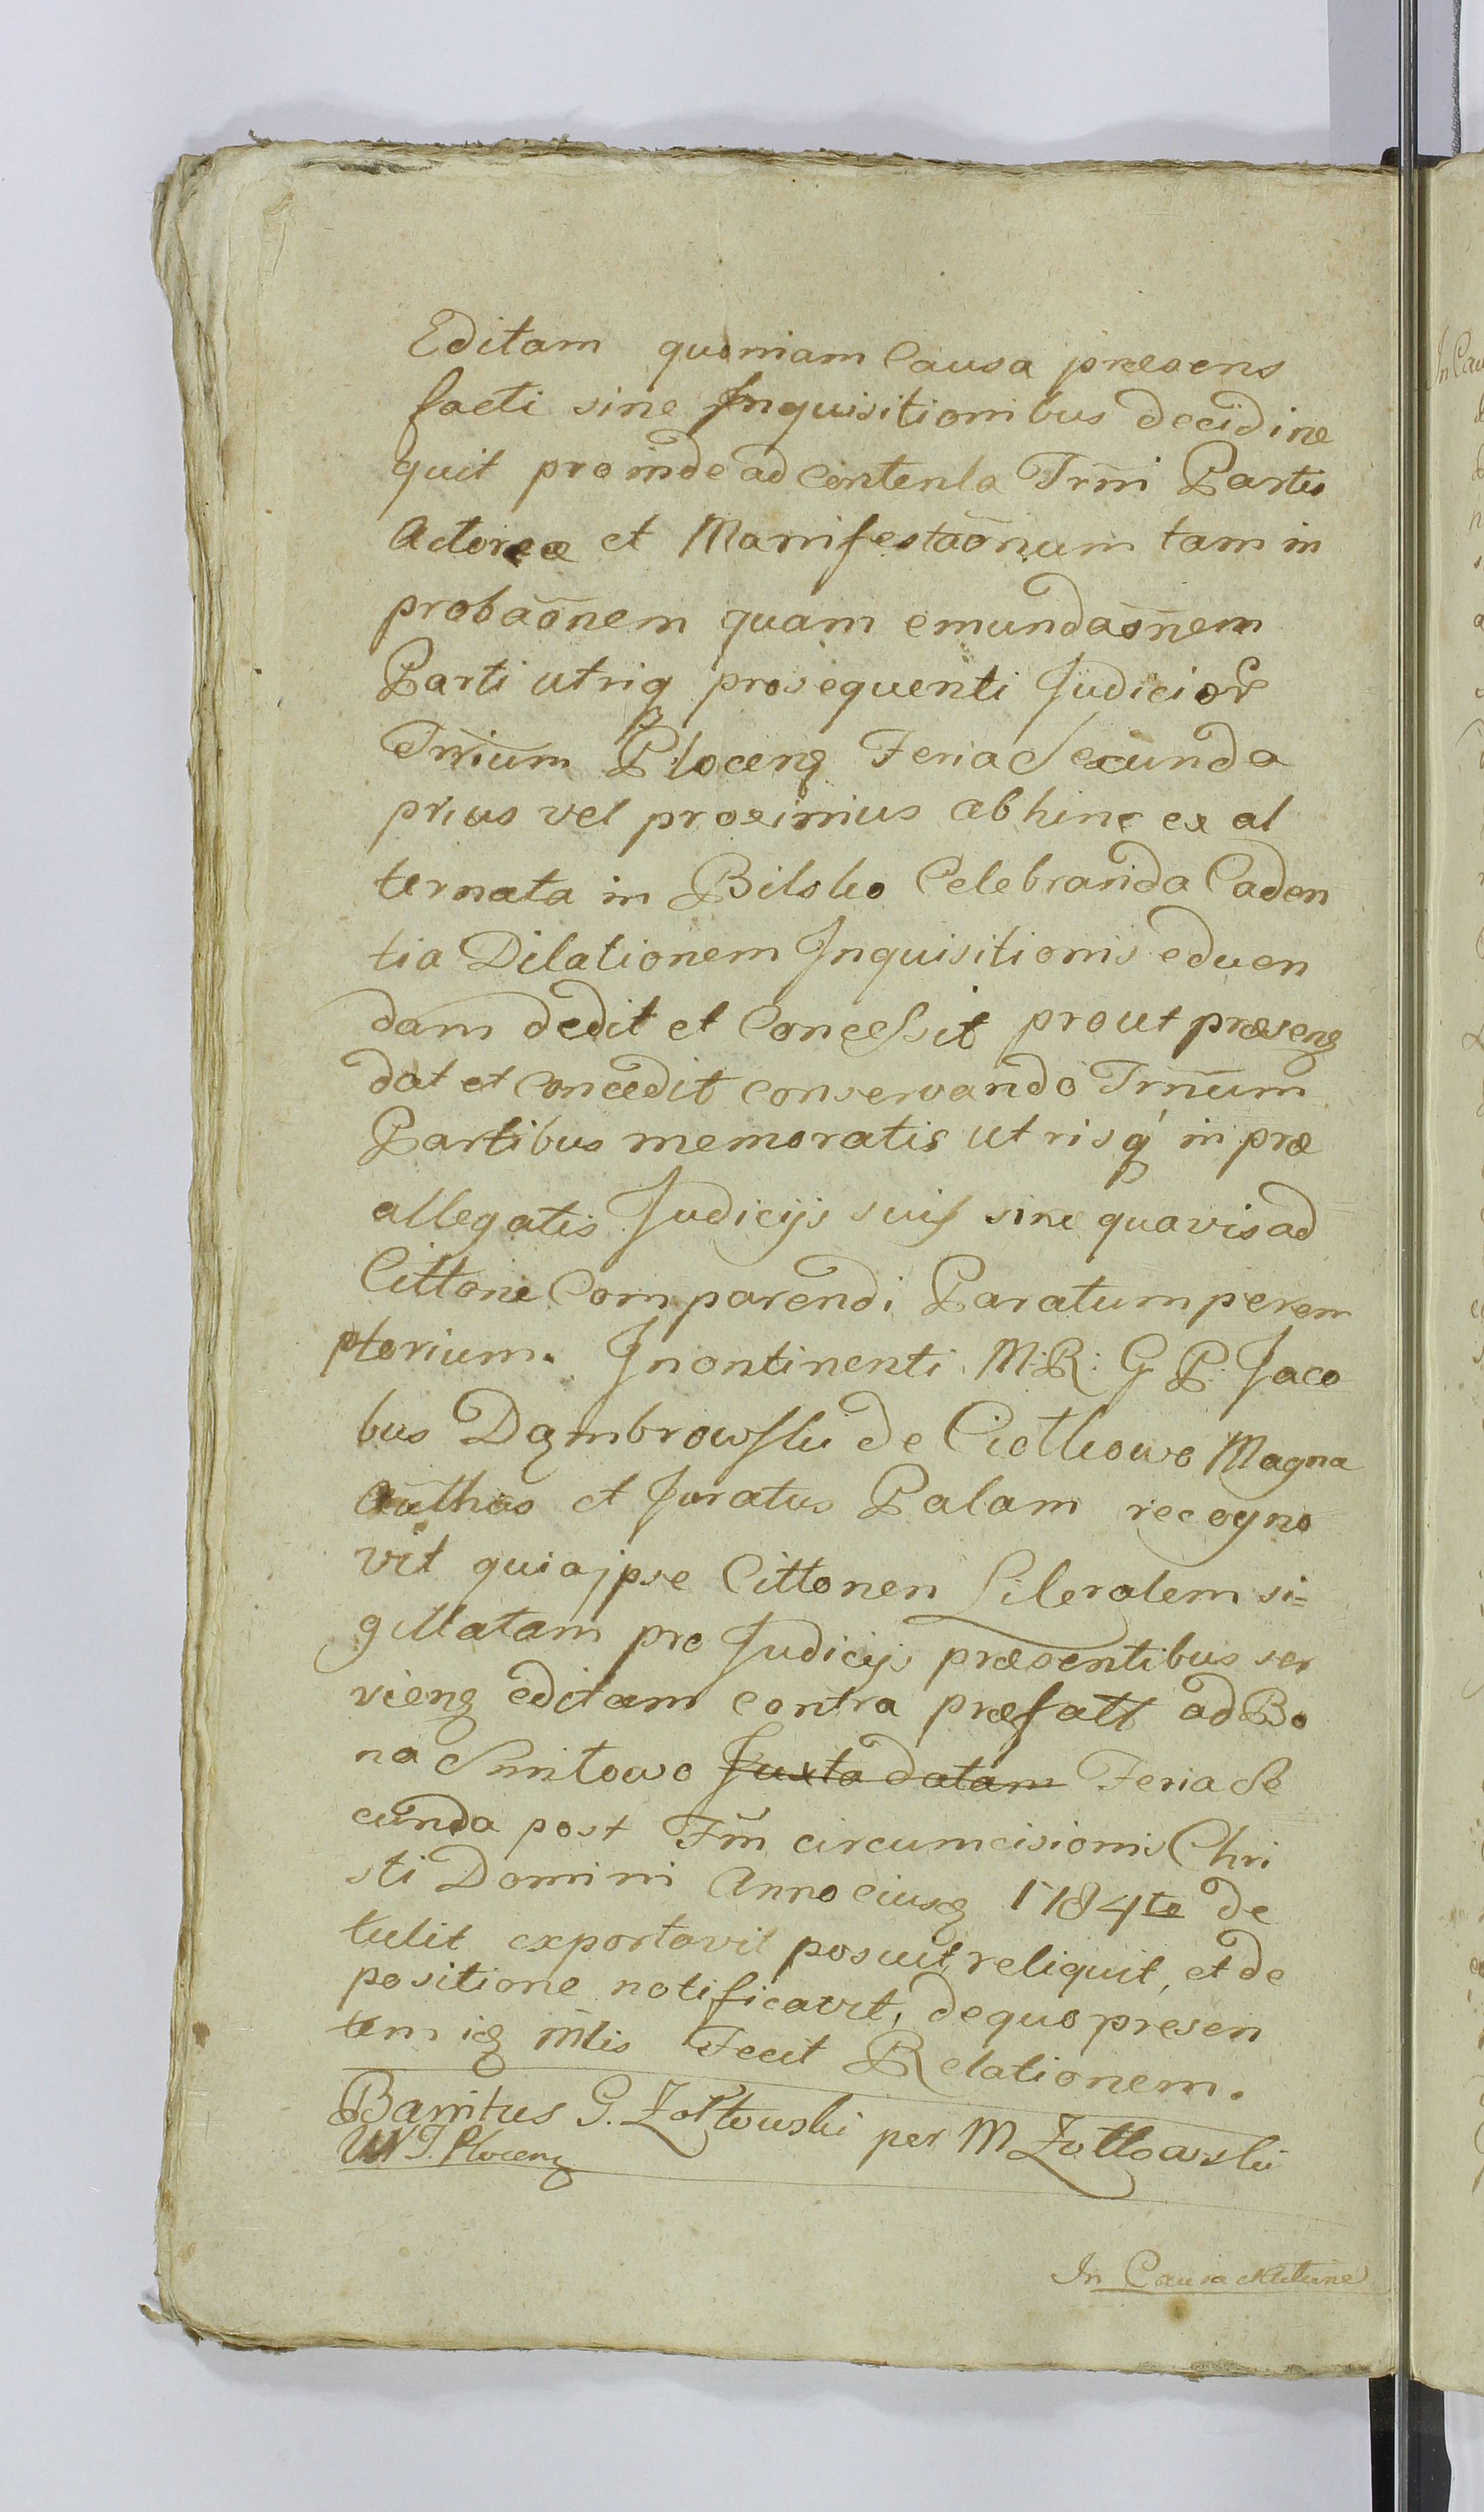 Editam quoniam Causa præsens
facti sine Inquisitionibus decidi ne
quit proinde ad Contenta Trm̄i Partis
Actoreæ et Manifestaōnum tam in
probaōnem quam emundaōnem
Parti utriq prosequenti Judicior
Trrium Plocenꝫ Feria Secunda
prius vel proximius abhinc ex al
ternata in Bilsko Celebranda Caden
tia Dilationem Inquisitionis educen
dam dedit et Concessit prout præsenꝫ
dat et Concedit conservando Trm̄um
Partibus memoratis utrisq́ in præ
allegatis Judicijs suis sine quavis ad
Cittone Comparendi Paratum perem
ptorium. Inontinenti M: R: G P: Jaco
bus Dąmbrowski de Ciołkowo Magna
Authus et Juratus Palam recogno
vit quia jpse Cittonen Literalem si=
gillatam pro Judicijs præsentibus ser
vienꝫ editam contra præfatt ad Bo
na Smitowo Juxta datam Feria Se
cunda post Fm̄ circumcisionis Chri
sti Domini Anno eiusꝫ 1784to de
tulit exportavit posuit, reliquit, et de
positione notificavit, de quo presen
tem iꝫ M̄lis Fecit Relationem.
Banitus G. Zołtowski per M Zołtowski
Plocenꝫ
In Causa